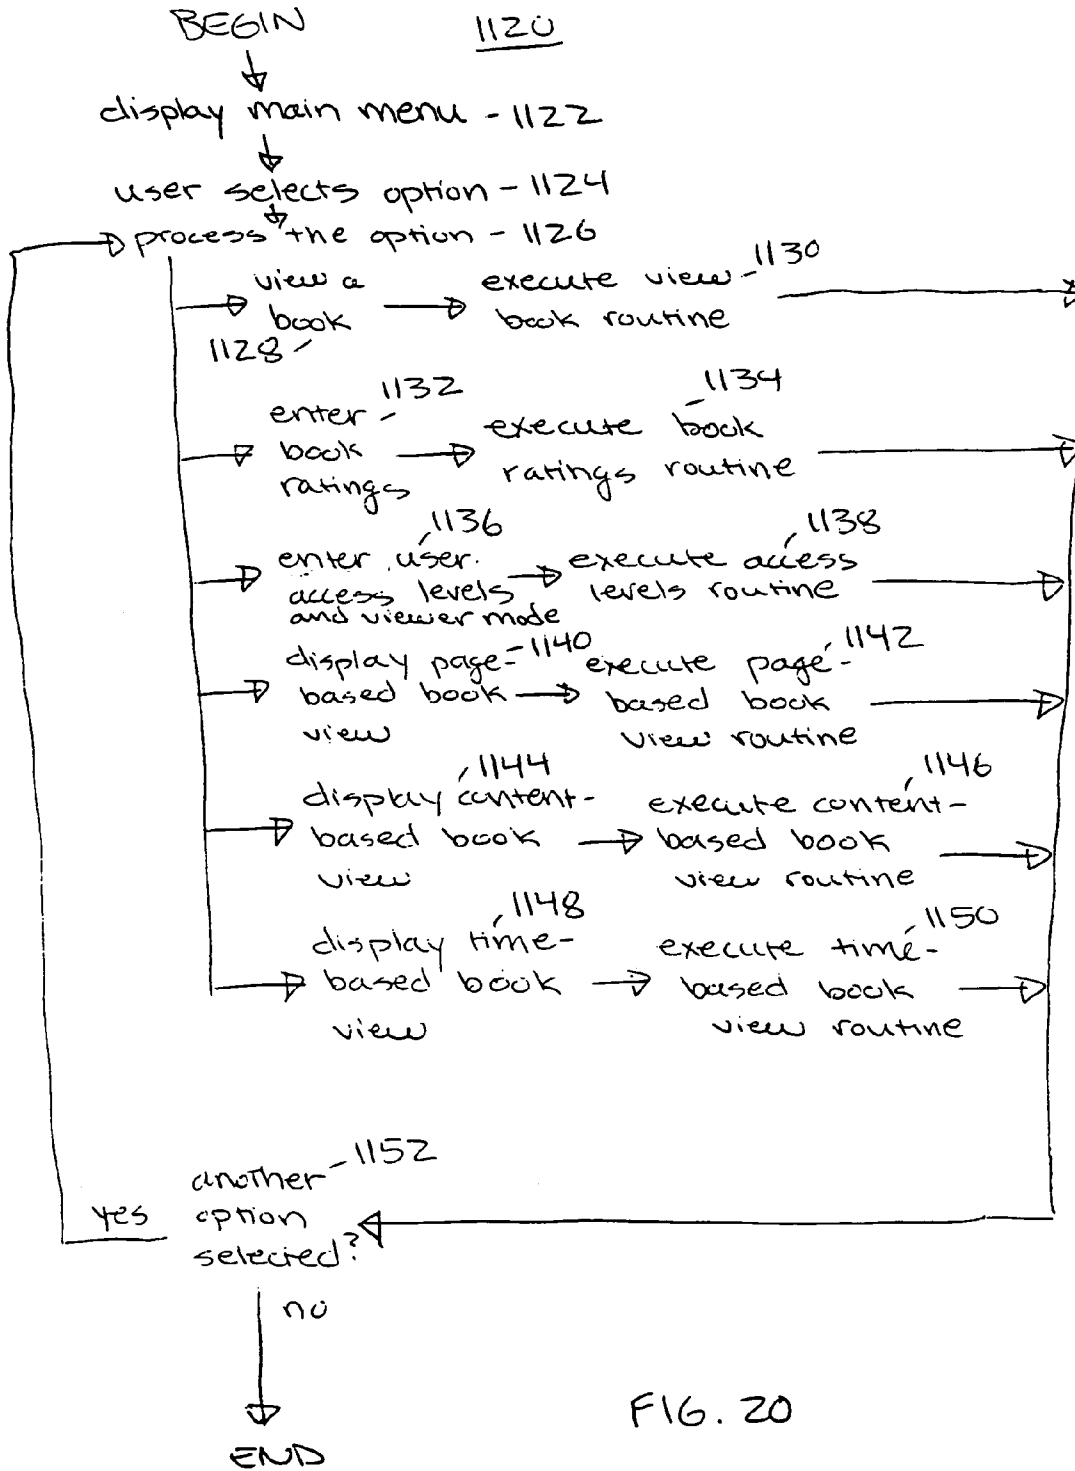 BEGIN
1120
display main menu - 1122
user selects option - 1124
process the option - 1126
view a
book
1128
execute view
book routine
1130
enter
book
ratings
1132
execute book
ratings routine
1134
enter user
access levels
and viewer mode
1136
execute access
levels routine
1138
display page-
based book
view
1140
execute page-
based book
view routine
1142
display content-
based book
view
1144
execute content-
based book
view routine
1146
display time-
based book
view
1148
execute time-
based book
view routine
1150
another
option
selected?
1152
yes
no
END
FIG. 20